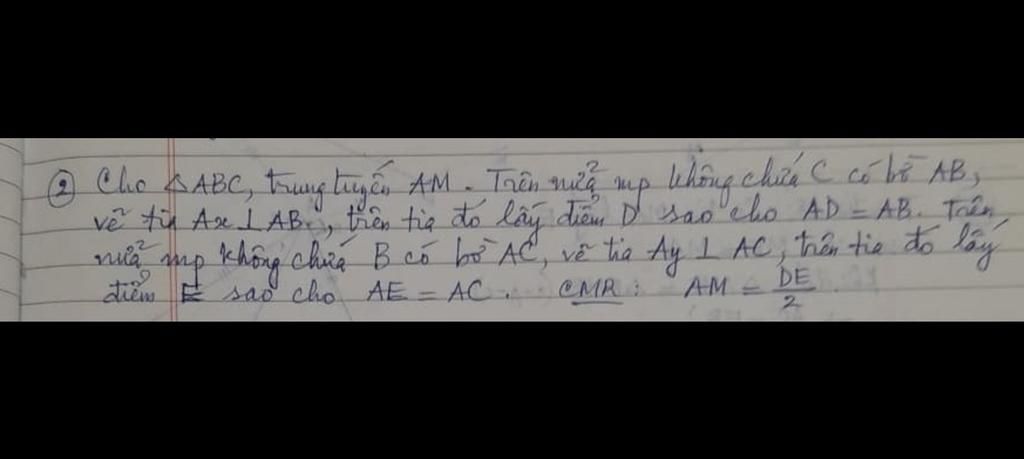 ② Cho △ABC, trung tuyến AM. Trên nửa mp không chứa C có bờ AB,
vẽ tia Ax ⊥ AB, trên tia đó lấy điểm D sao cho AD = AB. Trên
nửa mp không chứa B có bờ AC, vẽ tia Ay ⊥ AC, trên tia đó lấy
điểm E sao cho AE = AC. CMR: AM = DE/2